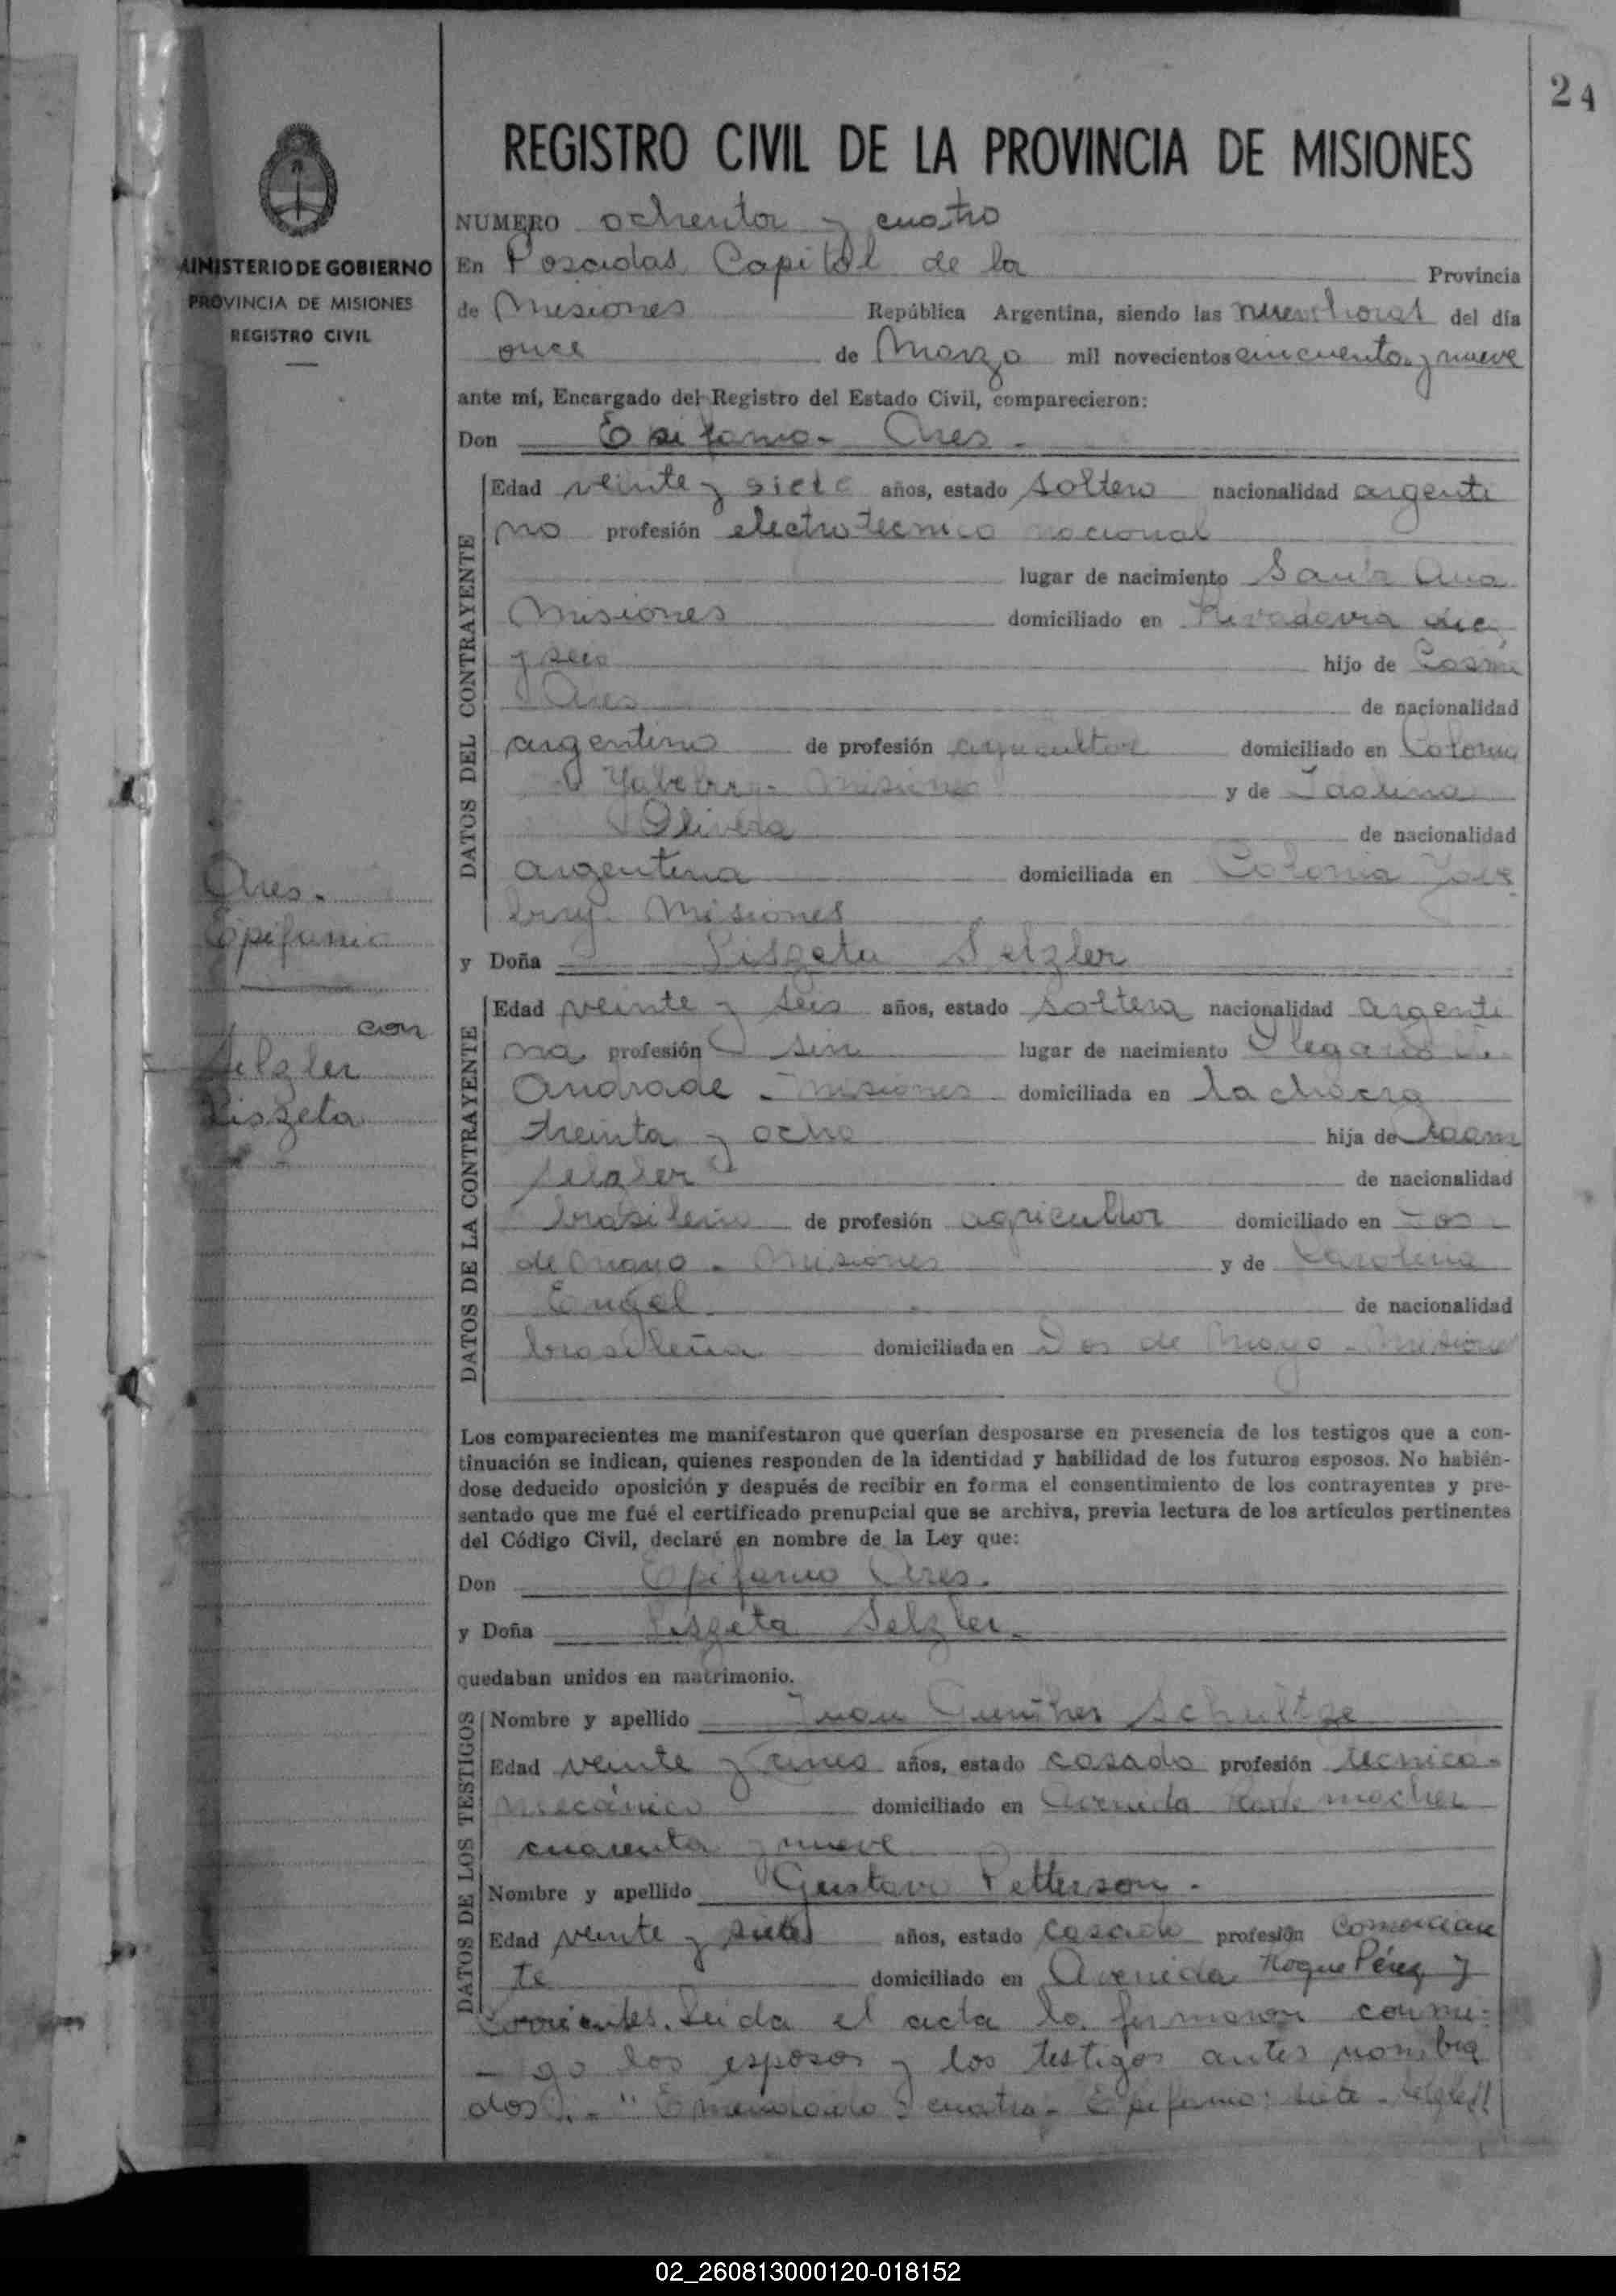 24
REGISTRO CIVIL DE LA PROVINCIA DE MISIONES
MINISTERIO DE GOBIERNO
PROVINCIA DE MISIONES
REGISTRO CIVIL
NUMERO ochenta y cuatro
En Posadas Capital de la Provincia
de Misiones República Argentina, siendo las nueve horas del día
once de Marzo mil novecientos cincuenta y nueve
ante mí, Encargado del Registro del Estado Civil, comparecieron:
Don Epifanio Ares.
DATOS DEL CONTRAYENTE
Edad veinte y siete años, estado soltero nacionalidad argenti
no profesión electrotecnico nacional
lugar de nacimiento Santa Ana
Misiones domiciliado en Rivadavia diez
y seis hijo de
Ares de nacionalidad
argentino de profesión agricultor domiciliado en Colonia
Yabebiry - Misiones y de
Olivera de nacionalidad
argentina domiciliada en Colonia Yabe
biry - Misiones
Ares.
Epifanio
con
Selzler
Liszeta
y Doña Liszeta Selzler
DATOS DE LA CONTRAYENTE
Edad veinte y seis años, estado soltera nacionalidad argenti
na profesión sin lugar de nacimiento
Andrade - Misiones domiciliada en La chacra
treinta y ocho hija de
Selzler de nacionalidad
brasileño de profesión agricultor domiciliado en Dos
de Mayo - Misiones y de Carolina
Engel de nacionalidad
brasileña domiciliada en Dos de Mayo - Misiones
Los comparecientes me manifestaron que querían desposarse en presencia de los testigos que a con-
tinuación se indican, quienes responden de la identidad y habilidad de los futuros esposos. No habién-
dose deducido oposición y después de recibir en forma el consentimiento de los contrayentes y pre-
sentado que me fué el certificado prenupcial que se archiva, previa lectura de los artículos pertinentes
del Código Civil, declaré en nombre de la Ley que:
Don Epifanio Ares.
y Doña Liszeta Selzler.
quedaban unidos en matrimonio.
DATOS DE LOS TESTIGOS
Nombre y apellido Juan Gunther Schultze
Edad veinte y cinco años, estado casado profesión técnico-
mecánico domiciliado en Avenida Rademacher
cuarenta y nueve
Nombre y apellido Gustavo Petterson.
Edad veinte y siete años, estado casado profesión Comercian
te domiciliado en Avenida Roque Pérez y
Corrientes. Leida el acta la firmaron conmi-
go los esposos y los testigos antes nombra
dos.- "Enmendado: cuatro - Epifanio: siete - Selzler"
02_260813000120-018152